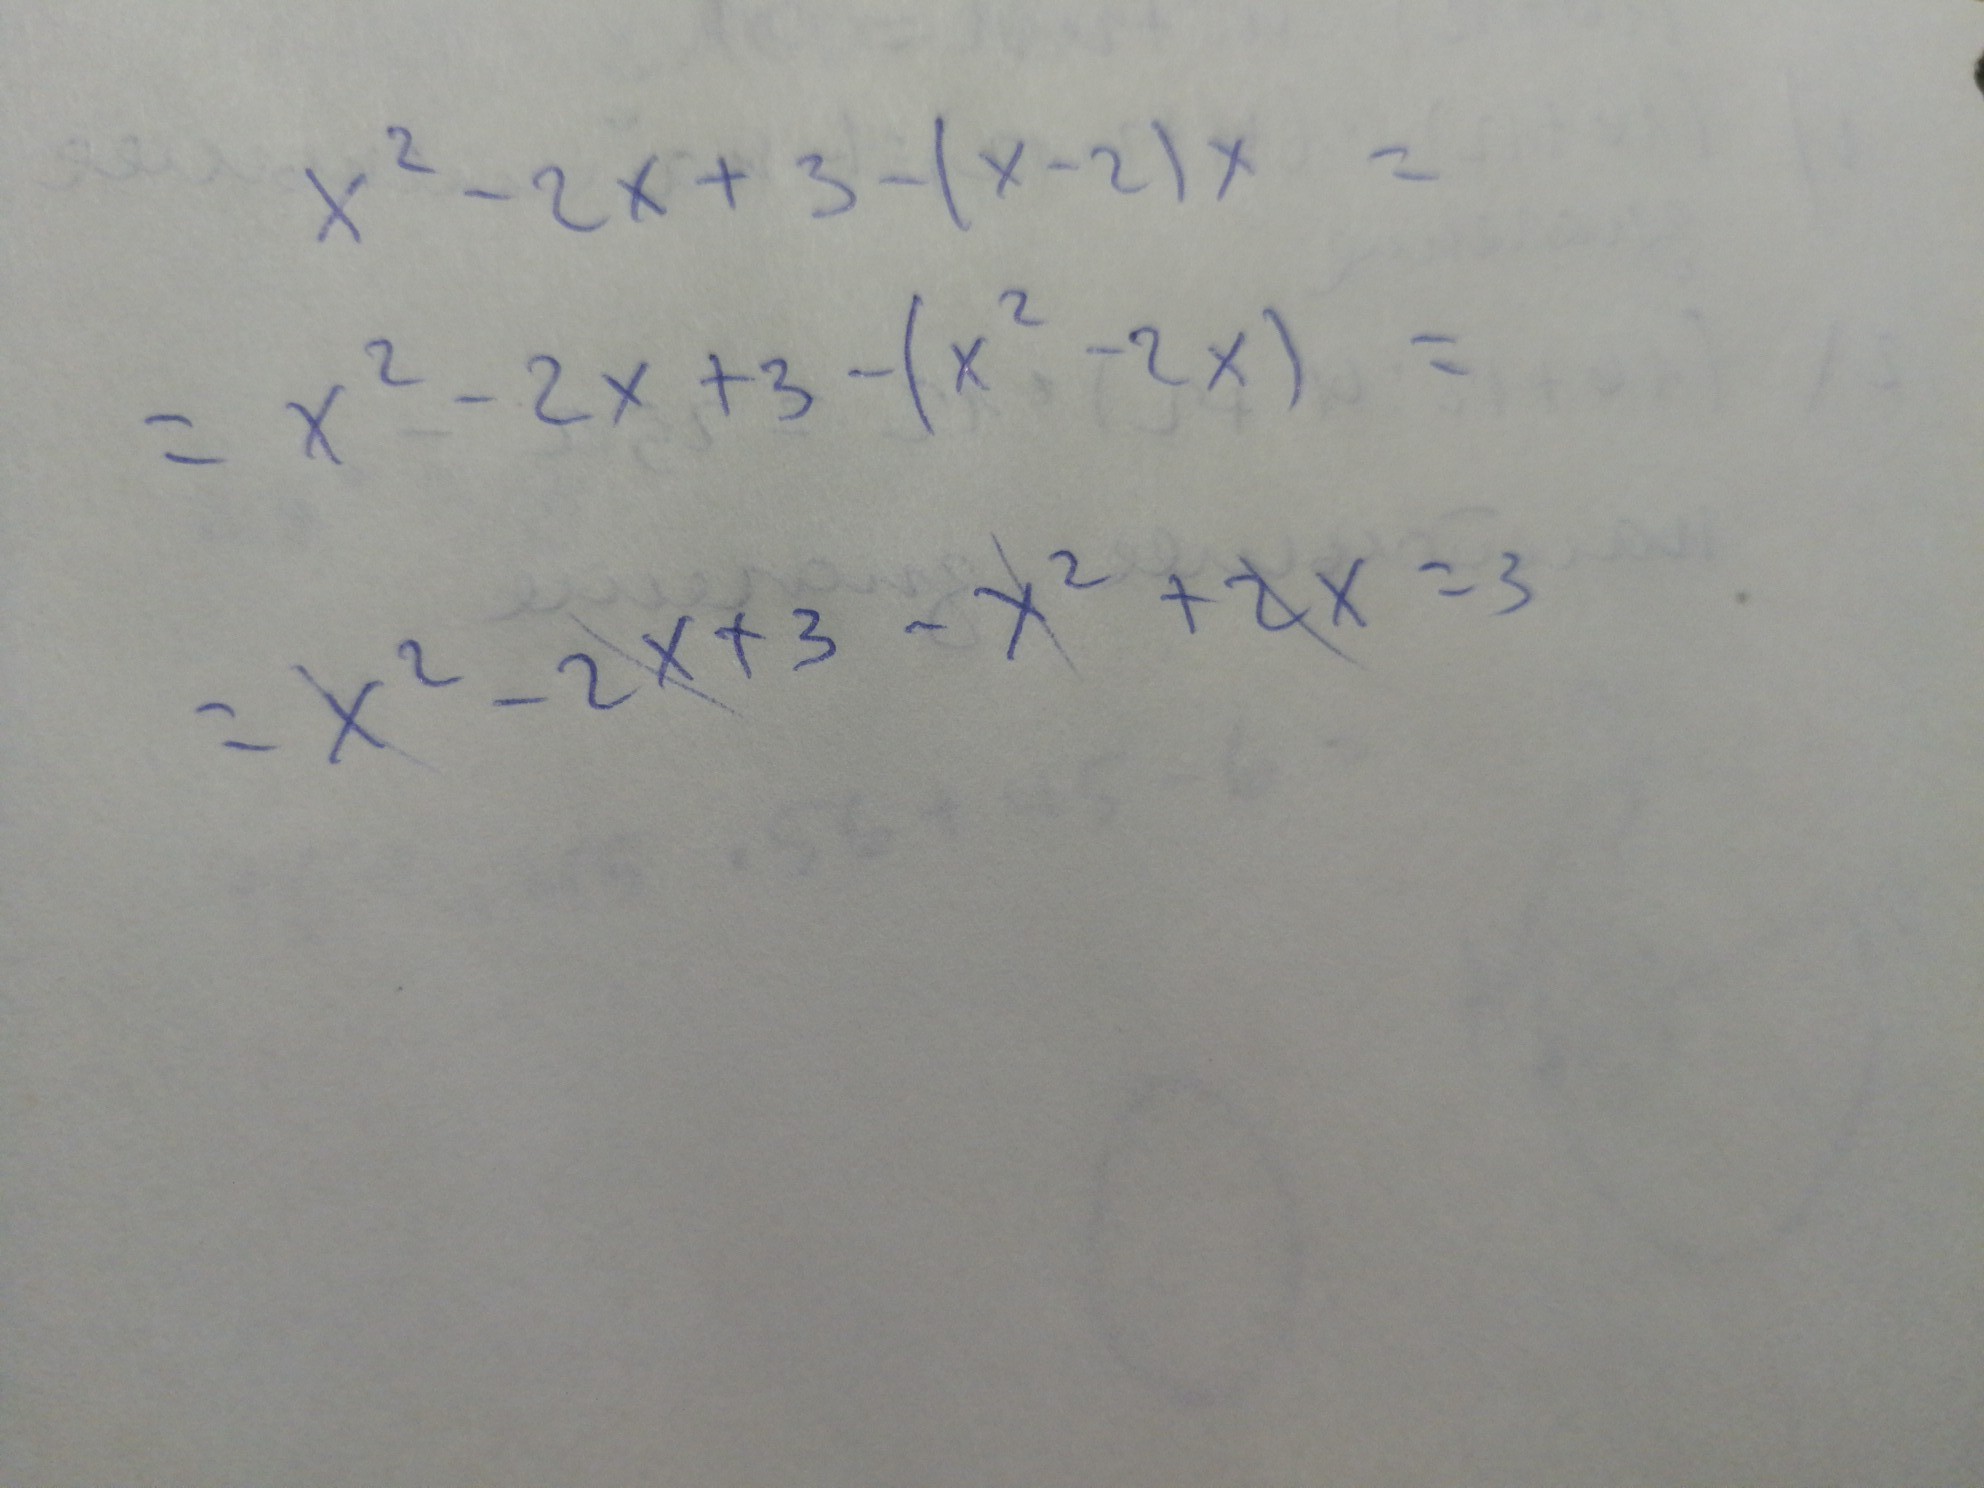 x² - 2x + 3 - (x - 2)x =
= x² - 2x + 3 - (x² - 2x) =
= x² - 2x + 3 - x² + 2x = 3